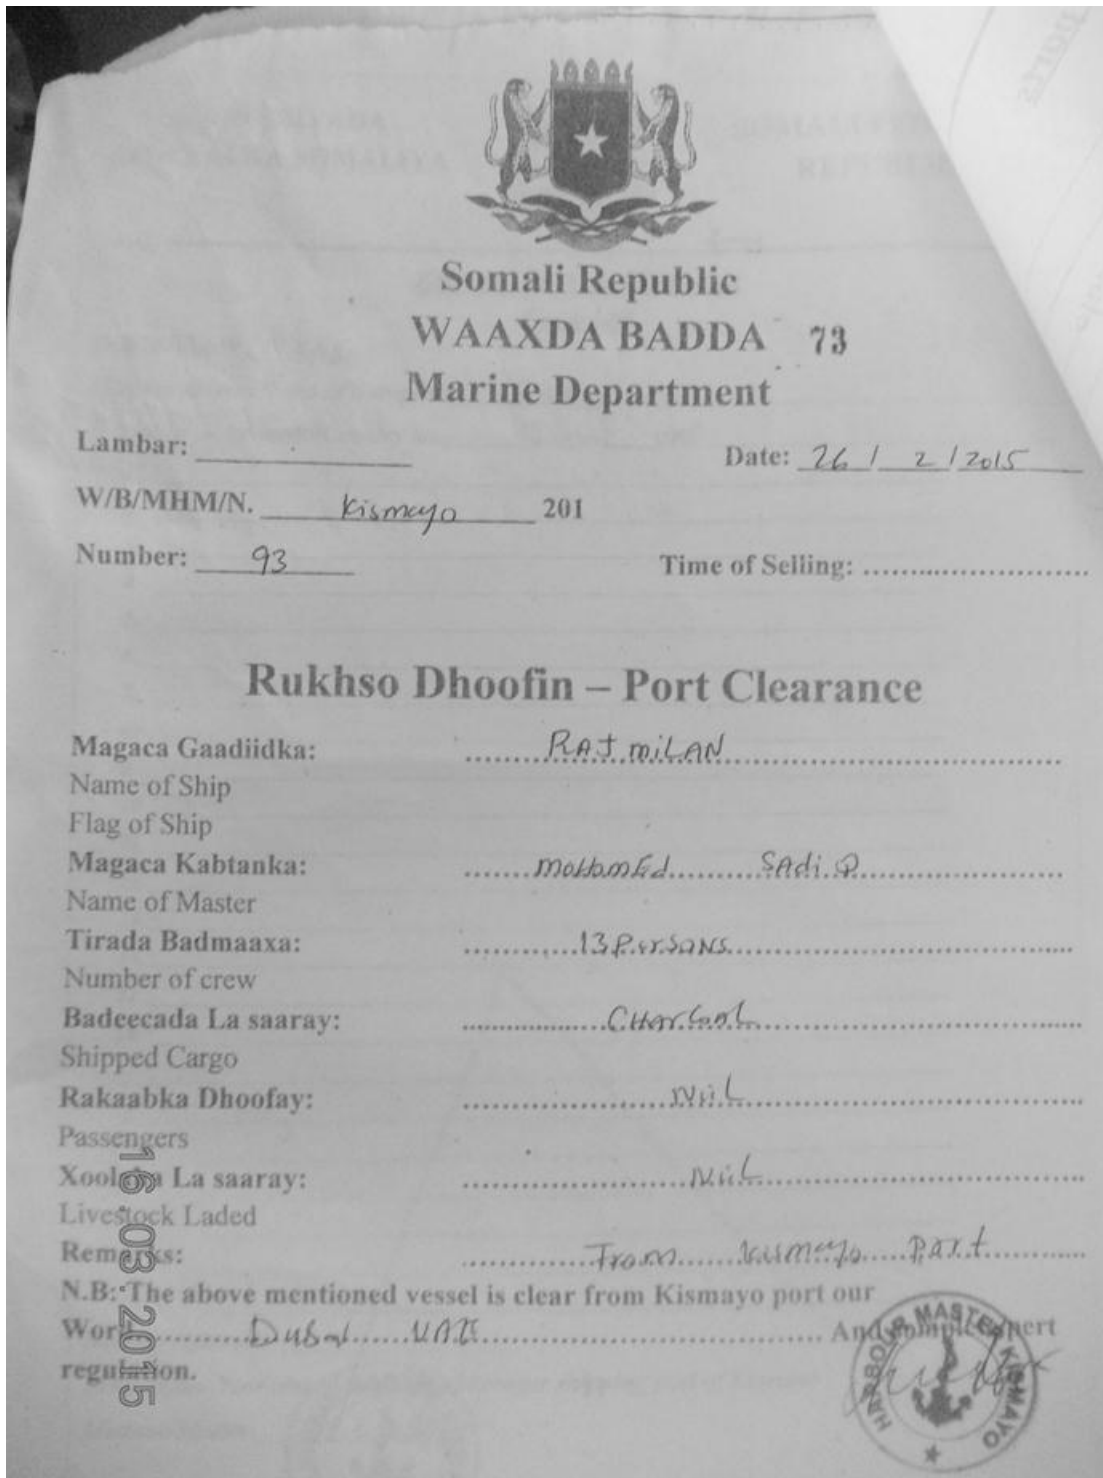 Somali Republic
WAAXDA BADDA 73
Marine Department
Lambar:
Date: 26/ 2/2015
W/B/MHM/N. Kismayo 201
Number: 93
Time of Selling: ........................
Rukhso Dhoofin – Port Clearance
Magaca Gaadiidka: RAJ miLAN
Name of Ship
Flag of Ship
Magaca Kabtanka: mohamEd SAdiQ
Name of Master
Tirada Badmaaxa: 13 Persons
Number of crew
Badeecada La saaray: CHarCoaL
Shipped Cargo
Rakaabka Dhoofay: NiiL
Passengers
La saaray: NiiL
Livestock Laded
Remarks: From Kismayo Port
N.B: The above mentioned vessel is clear from Kismayo port our
Dubai UAE And
regulation.
16 03 2015
HARBOUR MASTER KISMAYO